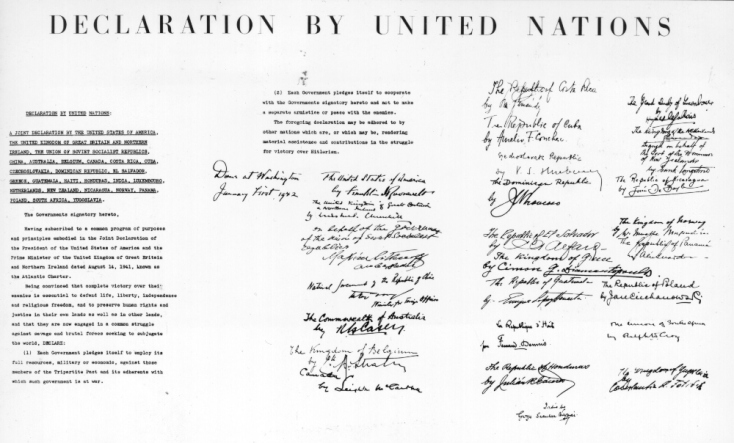 DECLARATION BY UNITED NATIONS
DECLARATION BY UNITED NATIONS:
A JOINT DECLARATION BY THE UNITED STATES OF AMERICA,
THE UNITED KINGDOM OF GREAT BRITAIN AND NORTHERN
IRELAND, THE UNION OF SOVIET SOCIALIST REPUBLICS,
CHINA, AUSTRALIA, BELGIUM, CANADA, COSTA RICA, CUBA,
CZECHOSLOVAKIA, DOMINICAN REPUBLIC, EL SALVADOR,
GREECE, GUATEMALA, HAITI, HONDURAS, INDIA, LUXEMBOURG,
NETHERLANDS, NEW ZEALAND, NICARAGUA, NORWAY, PANAMA,
POLAND, SOUTH AFRICA, YUGOSLAVIA.
The Governments signatory hereto,
Having subscribed to a common program of purposes
and principles embodied in the Joint Declaration of
the President of the United States of America and the
Prime Minister of the United Kingdom of Great Britain
and Northern Ireland dated August 14, 1941, known as
the Atlantic Charter.
Being convinced that complete victory over their
enemies is essential to defend life, liberty, independence
and religious freedom, and to preserve human rights and
justice in their own lands as well as in other lands,
and that they are now engaged in a common struggle
against savage and brutal forces seeking to subjugate
the world, DECLARE:
(1) Each Government pledges itself to employ its
full resources, military or economic, against those
members of the Tripartite Pact and its adherents with
which such government is at war.
(2) Each Government pledges itself to cooperate
with the Governments signatory hereto and not to make
a separate armistice or peace with the enemies.
The foregoing declaration may be adhered to by
other nations which are, or which may be, rendering
material assistance and contributions in the struggle
for victory over Hitlerism.
Done at Washington
January First 1942
The United States of America
by Franklin D Roosevelt
The United Kingdom of Great Britain
& Northern Ireland
by Winston S. Churchill
on behalf of the Government
of the Union of Soviet Socialist
Republics
Maxim Litvinoff
Ambassador
National Government of the Republic of China
Minister for Foreign Affairs
The Commonwealth of Australia
by R G Casey
The Kingdom of Belgium
by
Canada
by Leighton McCarthy
The Republic of Costa Rica
by
The Republic of Cuba
by Aurelio F. Concheso
Czechoslovak Republic
by V. S. Hurban
The Dominican Republic
by
The Republic of El Salvador
by
The Kingdom of Greece
by Cimon G. Diamantopoulos
The Republic of Guatemala
by
La Republique d'Haiti
par Fernand Dennis
The Republic of Honduras
by Julián R Cáceres
India
Girja Shankar Bajpai
The Grand Duchy of Luxembourg
by
The Kingdom of the Netherlands
Signed on behalf of
the Govt of the Dominion
of New Zealand
by Frank Langstone
The Republic of Nicaragua
by
The Kingdom of Norway
by
The Republic of Panamá
by
The Republic of Poland
by Jan Ciechanowski
The Union of South Africa
by Ralph W Close
The Kingdom of Yugoslavia
by